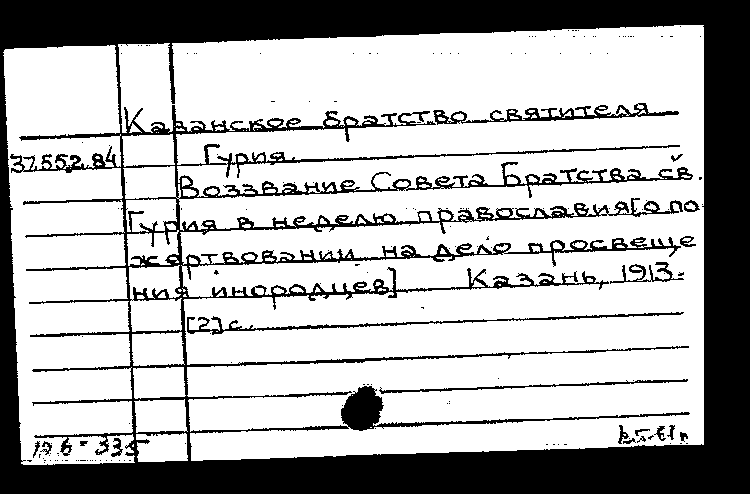 Казанское братство святителя
37.552.84 Гурия.
Воззвание Совета Братства св.
Гурия в неделю православия [о по
жертвовании на дело просвеще
ния инородцев] Казань, 1913.
[2] с.